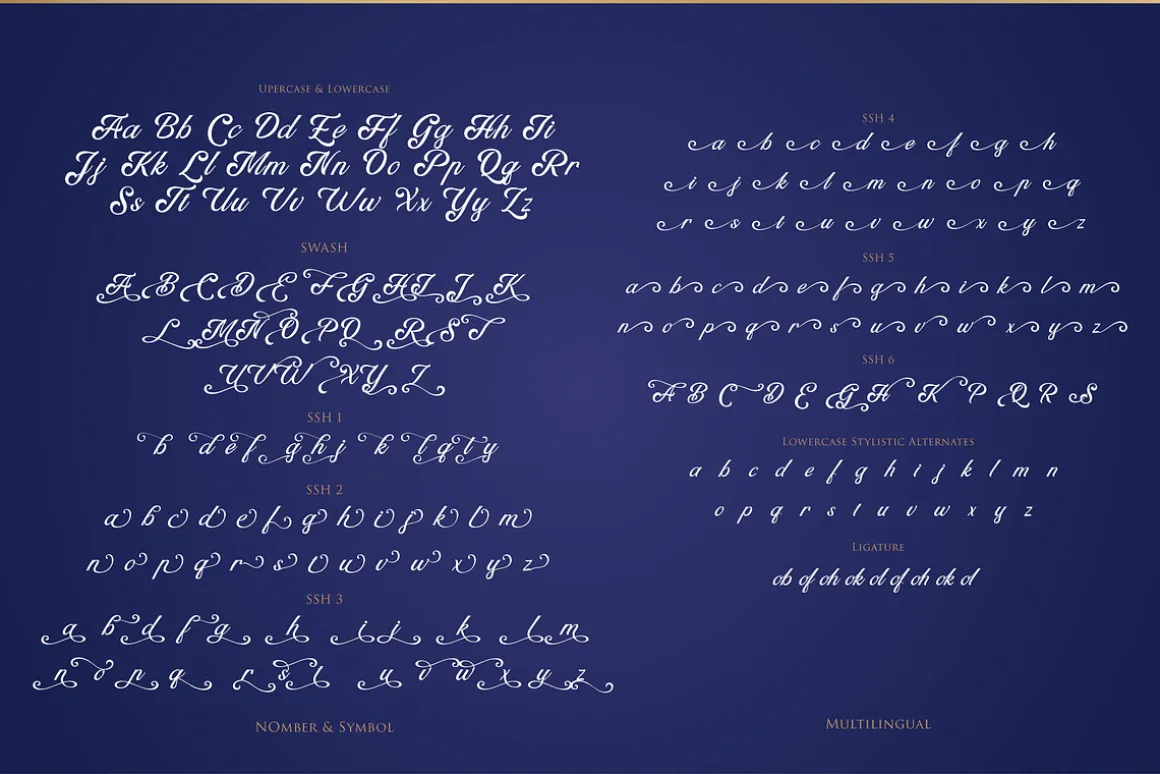 Upercase & Lowercase
Aa Bb Cc Dd Ee Ff Gg Hh Ii
Jj Kk Ll Mm Nn Oo Pp Qq Rr
Ss Tt Uu Vv Ww Xx Yy Zz
SWASH
A B C D E F G H I J K
L M N O P Q R S T
U V W X Y Z
SSH 1
b d e f g h j k l q t y
SSH 2
a b c d e f g h i j k l m
n o p q r s t u v w x y z
SSH 3
a b d f g h i j k l m
n o p q r s t u v w x y z
NOmber & Symbol
SSH 4
a b c d e f g h
i j k l m n o p q
r s t u v w x y z
SSH 5
a b c d e f g h i k l m
n o p q r s u v w x y z
SSH 6
A B C D E G H K P Q R S
Lowercase Stylistic Alternates
a b c d e f g h i j k l m n
o p q r s t u v w x y z
Ligature
ob of oh ok ol of oh ok ol
Multilingual